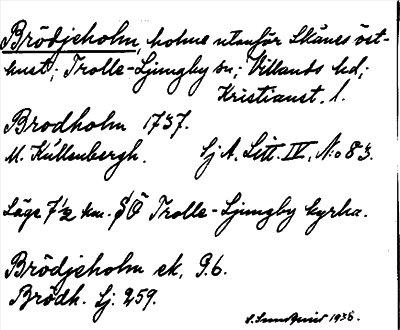 Brödjeholm, holme utanför Skånes öst-
kust; Trolle-Ljungby sn; Villands hd;
Kristianst. l.
Brodholm 1737.
M. Kúllenbergh. Lj A. Litt. IV, N:o 83.
Läge 7 1/2 km. SÖ Trolle-Ljungby kyrka.
Brödjeholm ek. 9.6.
Brödh. Lj. 259.
S. Sundquist 1936.